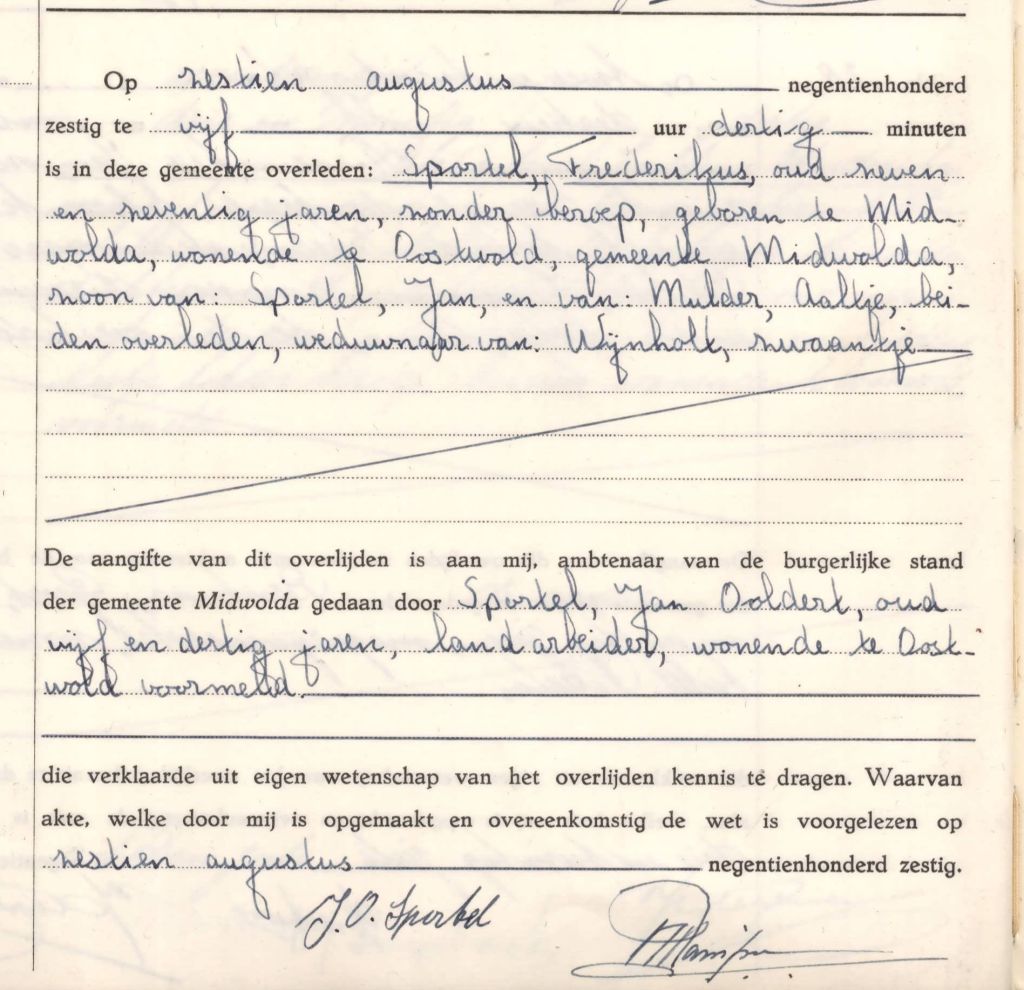 Op zestien augustus negentienhonderd
zestig te vijf uur dertig minuten
is in deze gemeente overleden: Sportel, Frederikus, oud zeven
en zeventig jaren, zonder beroep, geboren te Mid-
wolda, wonende te Oostwold, gemeente Midwolda,
zoon van: Sportel, Jan, en van: Mulder, Aaltje, bei-
den overleden, weduwnaar van: Wijnholt, Zwaantje
De aangifte van dit overlijden is aan mij, ambtenaar van de burgerlijke stand
der gemeente Midwolda gedaan door Sportel, Jan Ooldert, oud
vijf en dertig jaren, landarbeider, wonende te Oost-
wold voormeld.
die verklaarde uit eigen wetenschap van het overlijden kennis te dragen. Waarvan
akte, welke door mij is opgemaakt en overeenkomstig de wet is voorgelezen op
zestien augustus negentienhonderd zestig.
J. O. Sportel